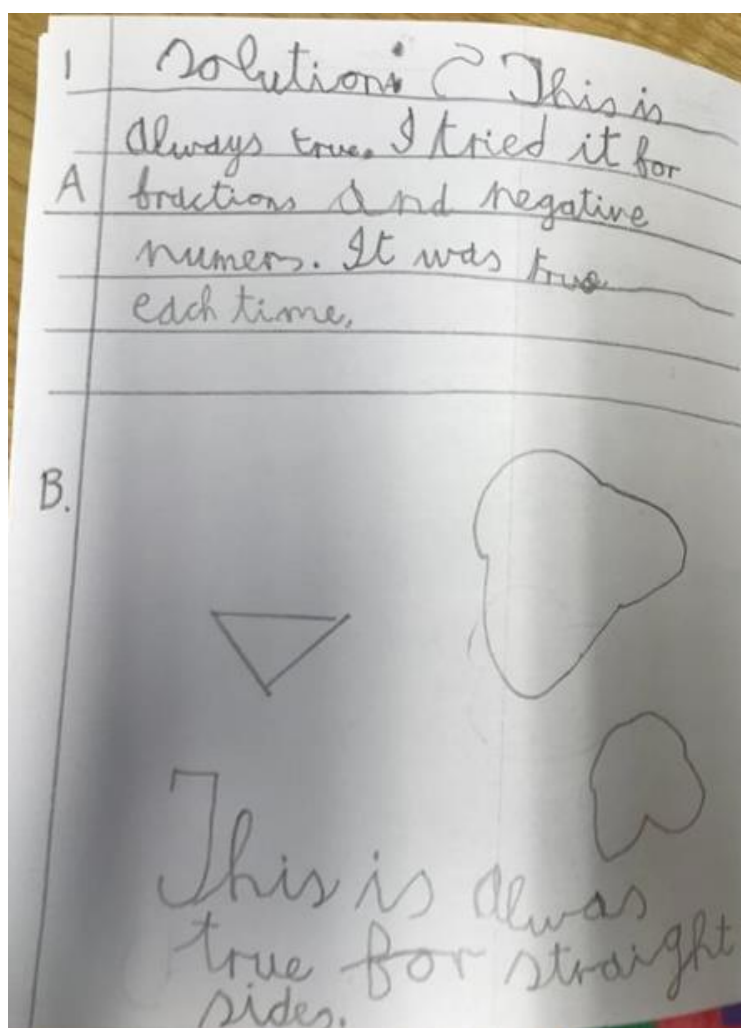 1 Solution: This is
always true. I tried it for
A fractions and negative
numers. It was true
each time,
B.
This is alwas
true for straight
sides.